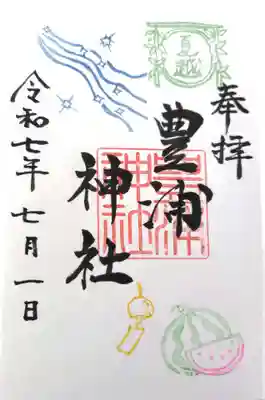 夏越
奉拝
豊浦
神社
令和七年七月一日